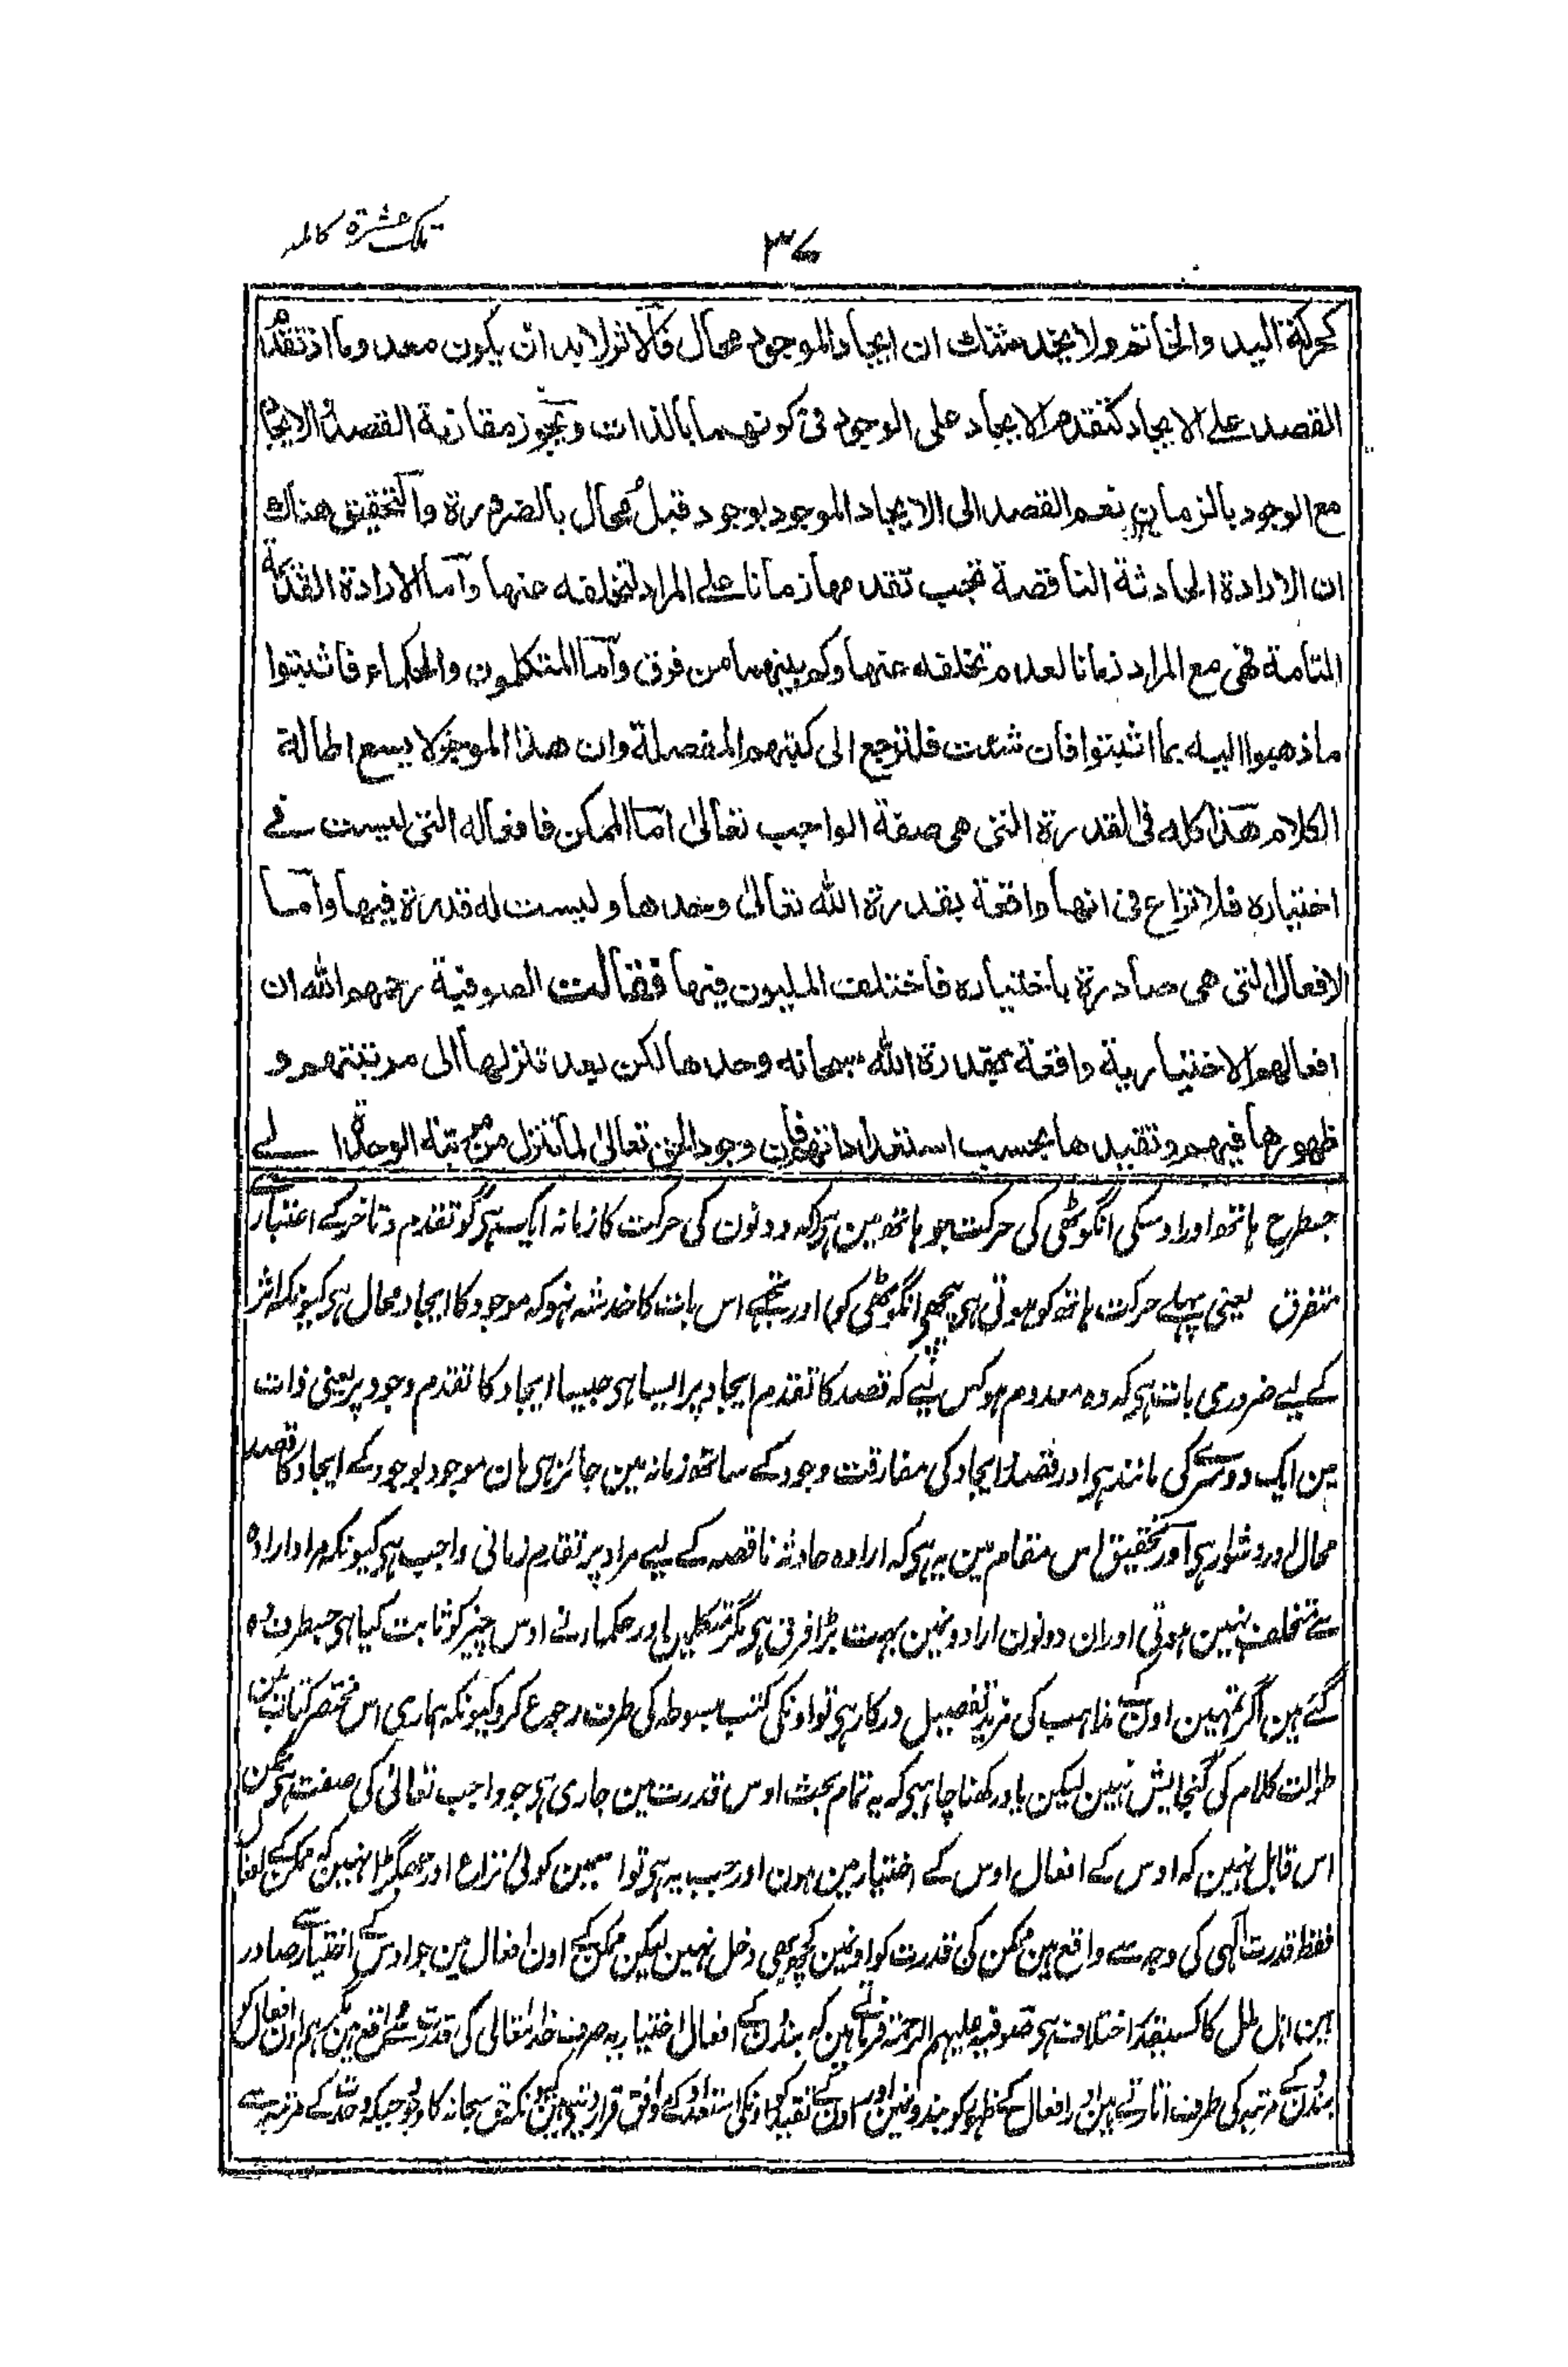 تلک عشرة کاملہ
٣٧
كحركة اليد والخاتم ولا يخدشنك ان ايجاد الموجود محال فالاثر لا بد ان يكون معدوما اذ تقدم
القصد على الايجاد كتقدم الايجاد على الوجود في كونهما بالذات ويجوز مقارنة القصد الايجاد
مع الوجود بالزمان نعم القصد الى الايجاد الموجود بوجود قبل محال بالضرورة والتحقيق هناك
ان الارادة الحادثة الناقصة تجب تقدمها زمانا على المراد لتخلفه عنها واما الارادة القديمة
التامة فهي مع المراد زمانا لعدم تخلفه عنها وكم بينهما من فرق واما المتكلمون والحكماء فاثبتوا
ما ذهبوا اليه بما اثبتوا فان شئت فلترجع الى كتبهم المفصلة وان هذا الموجز لا يسع اطالة
الكلام هذا كله في القدرة التي هي صفة الواجب تعالى اما الممكن فافعاله التي ليست في
اختياره فلا نزاع في انها واقعة بقدرة الله تعالى وحدها وليست له قدرة فيها واما
الافعال التي هي صادرة باختياره فاختلف المليون فيها فقالت الصوفية رحمهم الله ان
افعالهم الاختيارية واقعة بقدرة الله سبحانه وحدها لكن بعد تنزلها الى مرتبتهم و
ظهورها فيهم وتقيدها بحسب استعداداتهم فان وجود الحق تعالى لما تنزل من مرتبته الوحدة الے
جسطرح ہاتھ اور اوسکی انگوٹھی کی حرکت جو ہاتھ مین ہی کہ دونون کی حرکت کا زمانہ ایک ہی گو تقدم و تاخر کے اعتبار سے
متفرق یعنی پہلے حرکت ہاتھ کو ہوتی ہی پیچھے انگوٹھی کو اور تجھے اس بات کا خدشہ نہو کہ موجود کا ایجاد محال ہی کیونکہ اثر
کے لیے ضروری بات ہی کہ وہ معدوم ہو کس لیے کہ قصد کا تقدم ایجاد پر ایسا ہی جیسا ایجاد کا تقدم وجود پر یعنی ذات
مین ایک دوسرے کی مانند ہی اور قصد ایجاد کی مقارقت وجود کے ساتھ زمانہ مین جائز ہی ہان موجود بوجود کے ایجاد کا قصد
محال اور دشوار ہی اور تحقیق اس مقام مین یہ ہی کہ ارادہ حادثہ ناقصہ کے لیے مراد پر تقدم زمانی واجب ہی کیونکہ مراد ارادہ
سے متخلف نہین ہوتی اور ان دونون ارادونمین بہت بڑا فرق ہی مگر متکلمین اور حکما نے اوس چیز کو ثابت کیا ہی جسطرف وہ
گئے ہین اگر تمہین اون کے مذاہب کی مزید تفصیل درکار ہی تو اونکی کتب مبسوطہ کی طرف رجوع کرو کیونکہ ہماری اس مختصر کتاب مین
طوالت کلام کی گنجایش نہین لیکن یاد رکھنا چاہیے کہ یہ تمام بحث اوس قدرت مین جاری ہی جو واجب تعالی کی صفت ہی ممکن
اس قابل نہین کہ اوس کے افعال اوس کے اختیار مین ہون اور جب یہ ہی تو اسمین کوئی نزاع اور جھگڑا نہین کہ ممکن کے افعال
فقط قدرت الٰہی کی وجہ سے واقع ہین ممکن کی قدرت کو اونمین کچھ بھی دخل نہین لیکن ممکن کے اون افعال مین جو اوس کے اختیار سے صادر
ہین اہل ملل کا کسیقدر اختلاف ہی صوفیہ علیہم الرحمۃ فرماتے ہین کہ بندون کے افعال اختیاریہ صرف خدا تعالی کی قدرت سے واقع ہین مگر ہم اون افعال کو
بندون کے مرتبہ کی طرف اتارتے ہین اور افعال کے ظہور کو بندونمین اور اون کے تقید کو اونکی استعداد کے موافق قرار دیتے ہین کیونکہ حق سبحانہ کا وجود جبکہ وحدت کے مرتبہ سے